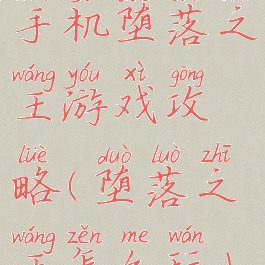 手机堕落之
wáng yóu xì gōng
王游戏攻
lüè duò luò zhī
略(堕落之
wáng zěn me wán